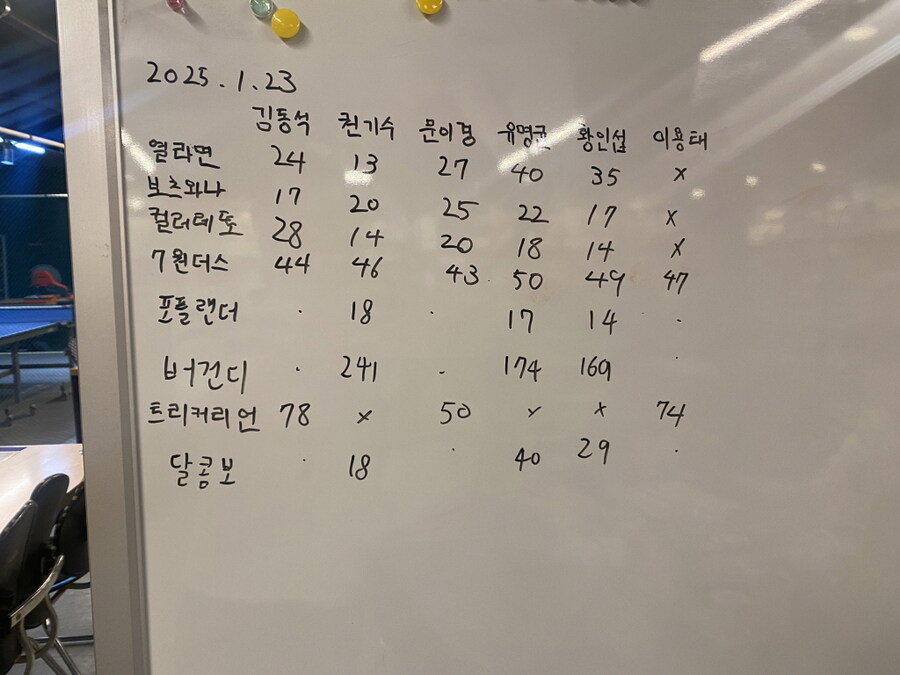 2025.1.23
김동석 권기수 문이경 유명균 황인섭 이용태
열라면 24 13 27 40 35 x
보츠와나 17 20 25 22 17 x
컬러레또 28 14 20 18 14 x
7원더스 44 46 43 50 49 47
포플랜더 . 18 . 17 14 .
버건디 . 241 . 174 169 .
트리커리언 78 x 50 x x 74
달콩보 . 18 . 40 29 .